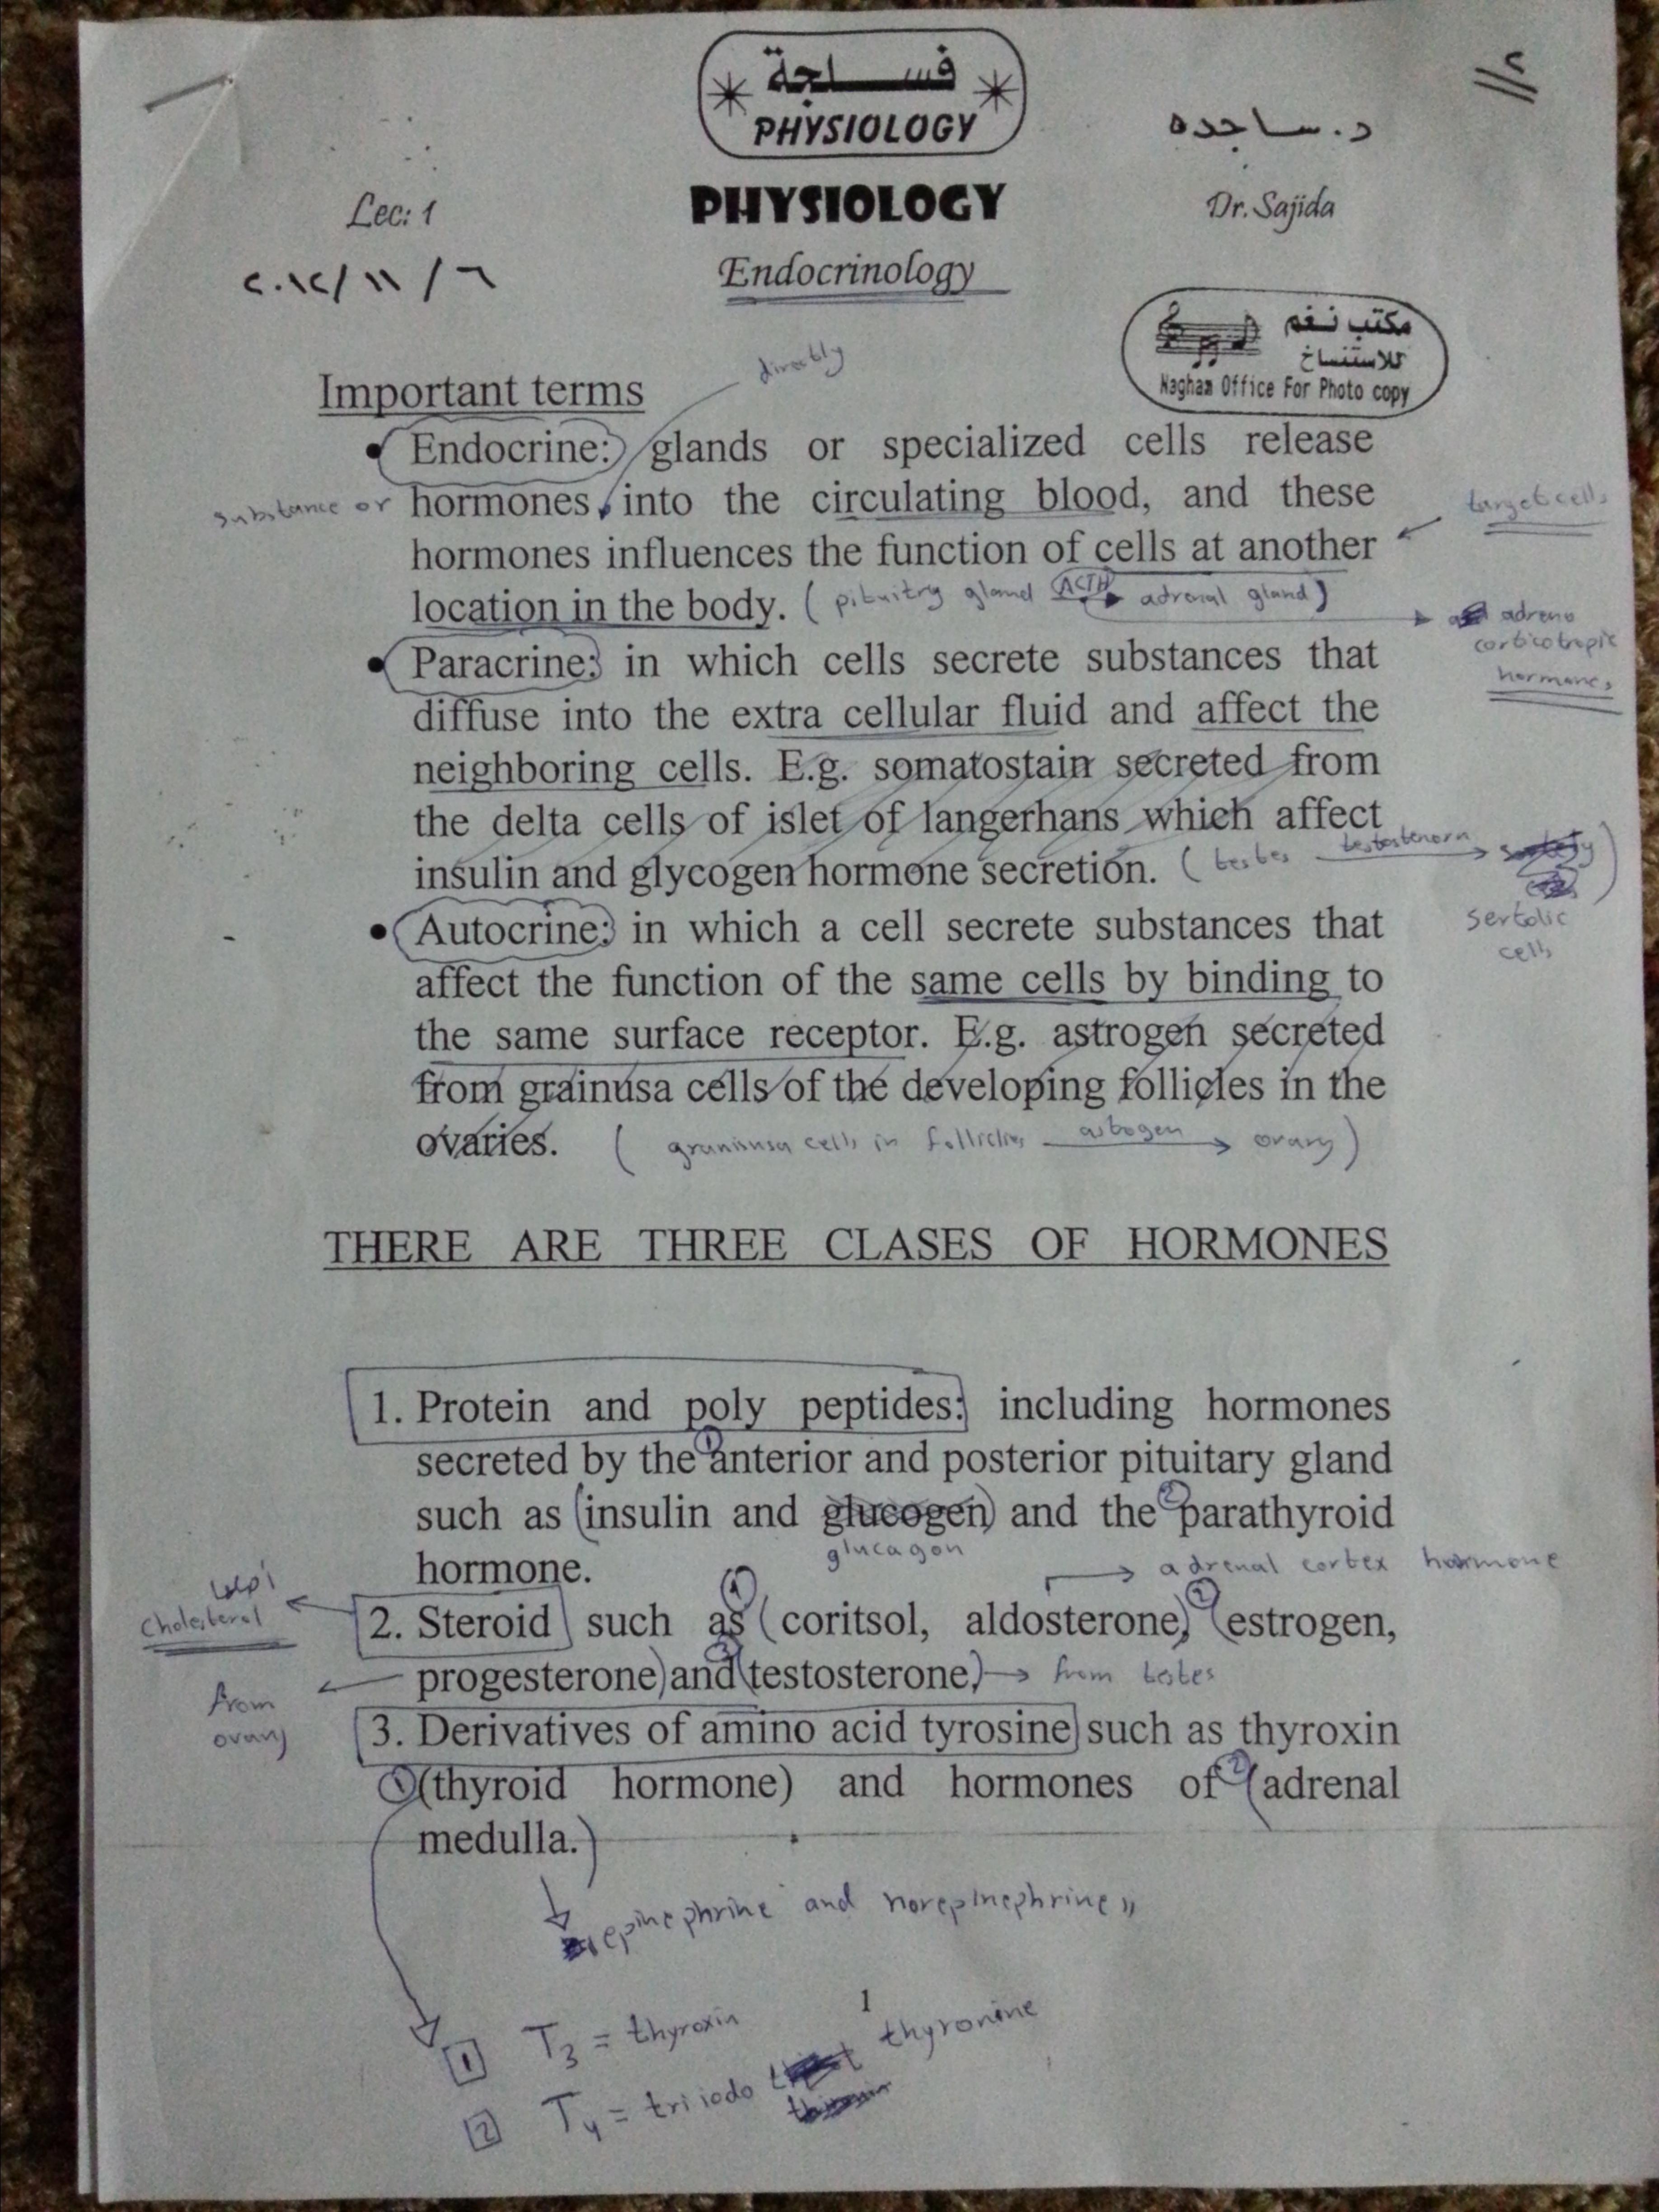 فســـلجة
PHYSIOLOGY
د. ساجده
PHYSIOLOGY
Lec: 1
Dr. Sajida
٢٠١٢/١١/٦
Endocrinology
مكتب نغم
للاستنساخ
Nagham Office For Photo copy
directly
Important terms
• Endocrine: glands or specialized cells release
substance or hormones into the circulating blood, and these
target cells
hormones influences the function of cells at another
location in the body. (pituitry gland ACTH adrenal gland)
adreno
corticotropic
hormones
• Paracrine: in which cells secrete substances that
diffuse into the extra cellular fluid and affect the
neighboring cells. E.g. somatostain secreted from
the delta cells of islet of langerhans which affect
insulin and glycogen hormone secretion. (testes testostenorn
sertolic
cells
• Autocrine: in which a cell secrete substances that
affect the function of the same cells by binding to
the same surface receptor. E.g. astrogen secreted
from grainusa cells of the developing follicles in the
ovaries. (granisusa cells in follicles astogen ovary)
THERE ARE THREE CLASES OF HORMONES
1. Protein and poly peptides: including hormones
secreted by the ① anterior and posterior pituitary gland
such as (insulin and glucogen) and the ② parathyroid
glucagon
hormone.
adrenal cortex hormone
cholesterol
2. Steroid such as ① (coritsol, aldosterone, ② (estrogen,
progesterone) and ③ (testosterone,) → from testes
from
ovary
3. Derivatives of amino acid tyrosine such as thyroxin
① (thyroid hormone) and hormones of ② (adrenal
medulla.)
epinephrine and norepinephrine
1
1 T3 = thyroxin
2 T4 = triiodo thyronine